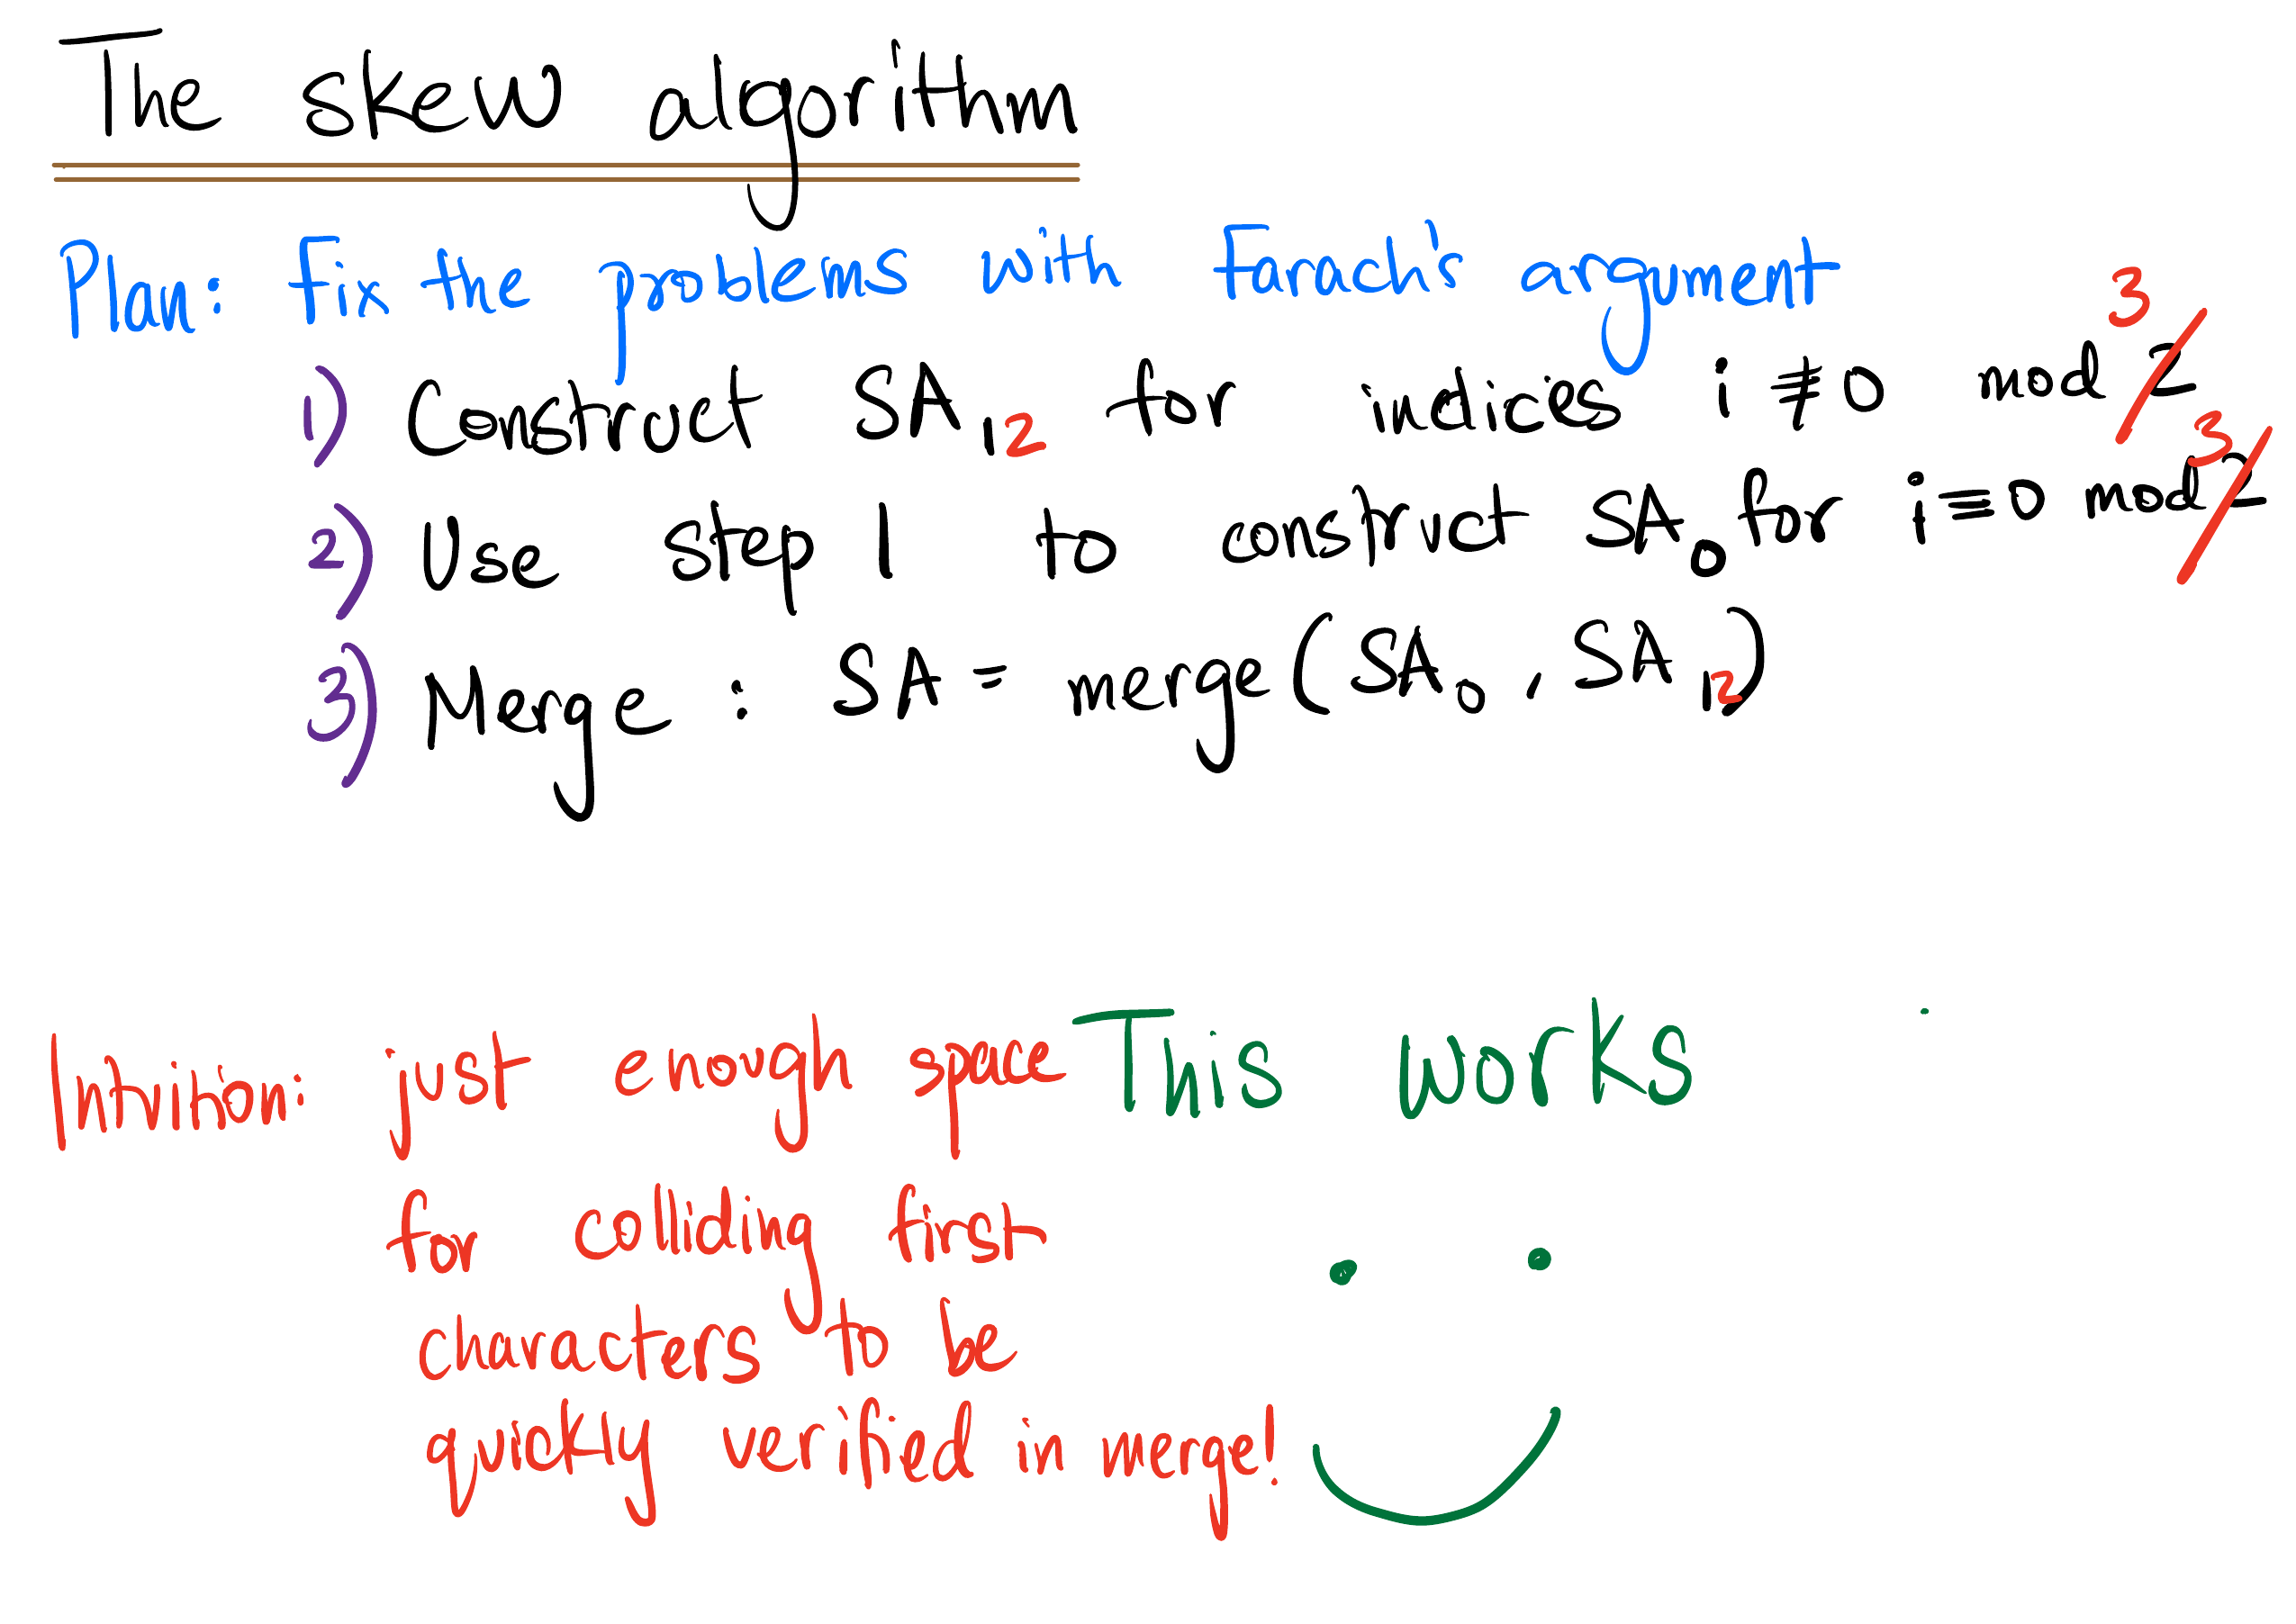 The skew algorithm
Plan: Fix the problems with Farach's argument
1) Construct SA₁₂ for indices i ≢ 0 mod ~~2~~ 3
2) Use step 1 to construct SA₀ for i ≡ 0 mod ~~2~~ 3
3) Merge : SA = merge(SA₀, SA₁₂)
Intuition: just enough space
for colliding first
characters to be
quickly verified in merge!
This works